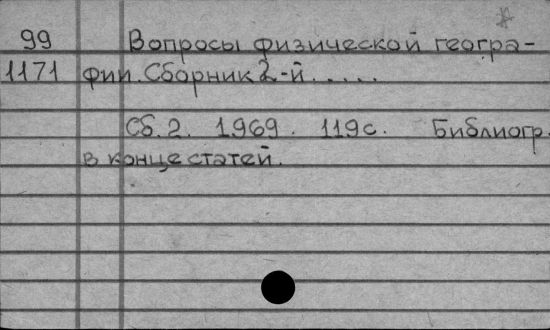 99 Вопросы физической геогра-
1171 фии. Сборник 2-й.....
Сб. 2. 1969. 119с. Библиогр.
в конце статей.